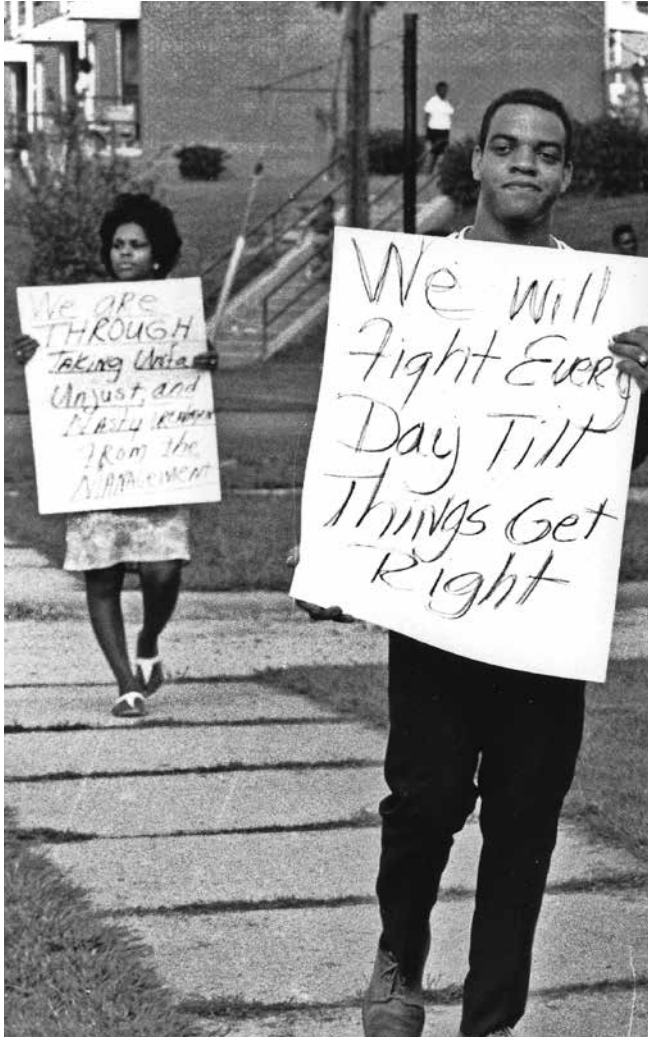 We are
THROUGH
Taking Unfair
Unjust, and
Nasty treatment
From the
MANAGEMENT
We Will
Fight Every
Day Till
Things Get
Right